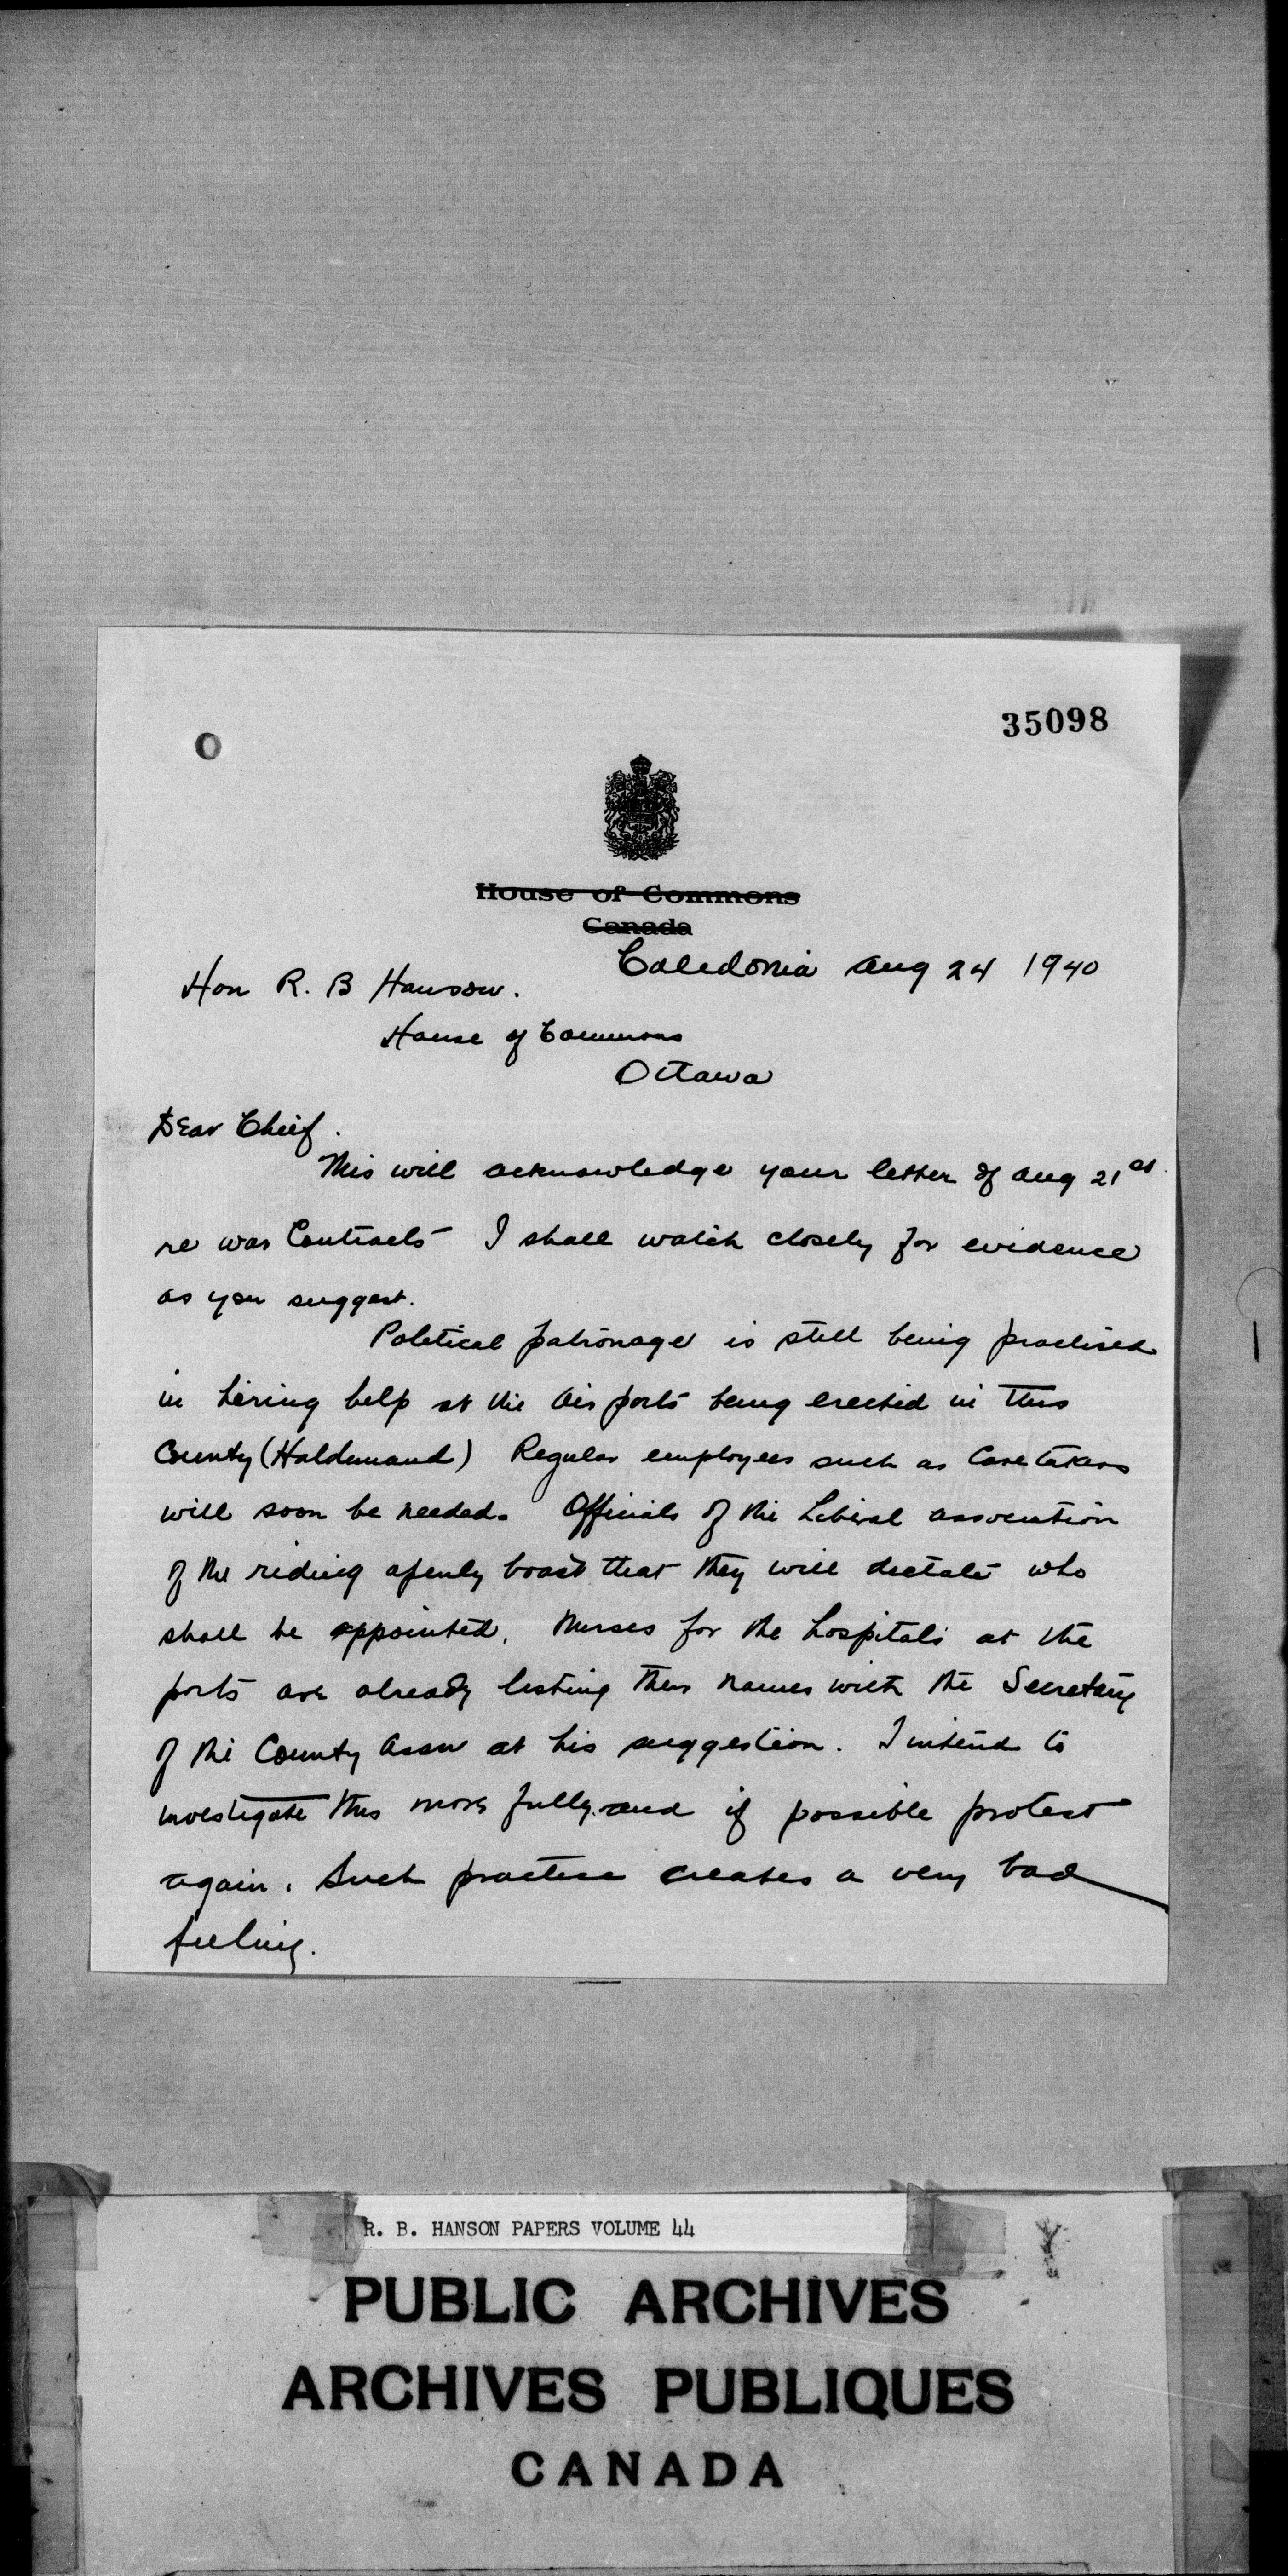 35098
House of Commons
Canada
Caledonia Aug 24 1940
Hon R. B Hanson.
House of Commons
Ottawa
Dear Chief.
This will acknowledge your letter of Aug 21st.
re war Contracts I shall watch closely for evidence
as you suggest.
Political patronage is still being practised
in hiring help at the Air ports being erected in this
County (Haldimand) Regular employees such as Caretakers
will soon be needed. Officials of the Liberal association
of the riding openly boast that they will dictate who
shall be appointed. Nurses for the hospitals at the
ports are already listing their names with the Secretary
of the County Assn at his suggestion. I intend to
investigate this more fully and if possible protest
again. Such practice creates a very bad
feeling.
R. B. HANSON PAPERS VOLUME 44
PUBLIC ARCHIVES
ARCHIVES PUBLIQUES
CANADA